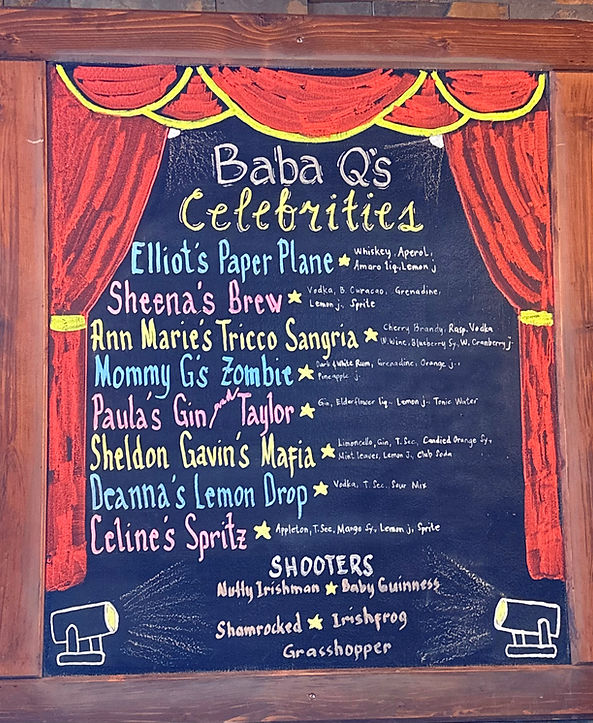 Baba Q's
Celebrities
Elliot's Paper Plane ★ Whiskey, Aperol,
Amaro liq, Lemon j
Sheena's Brew ★ Vodka, B. Curacao, Grenadine,
Lemon j. Sprite
Ann Marie's Tricco Sangria ★ Cherry Brandy, Rasp. Vodka
W. Wine, Blueberry Sy, W. Cranberry j.
Mommy G's Zombie ★ Dark & White Rum, Grenadine, Orange j.,
Pineapple j.
Paula's Gin and Taylor ★ Gin, Elderflower liq., Lemon j.. Tonic Water
Sheldon Gavin's Mafia ★ Limoncello, Gin, T. Sec, Candied Orange Sy,
Mint leaves, Lemon J., Club Soda
Deanna's Lemon Drop ★ Vodka, T. Sec, Sour Mix
Celine's Spritz ★ Appleton, T. Sec, Mango Sy, Lemon j, Sprite
SHOOTERS
Nutty Irishman ★ Baby Guinness
Shamrocked ★ Irishfrog
Grasshopper